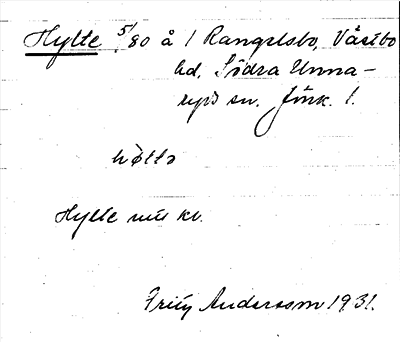 Hylte 5/80 å 1 Rangelsbo, Västbo
hd, Södra Unna-
ryd sn. Jönk. l.
hỳlta
Hylte mu kv.
Fritz Andersson 1931.